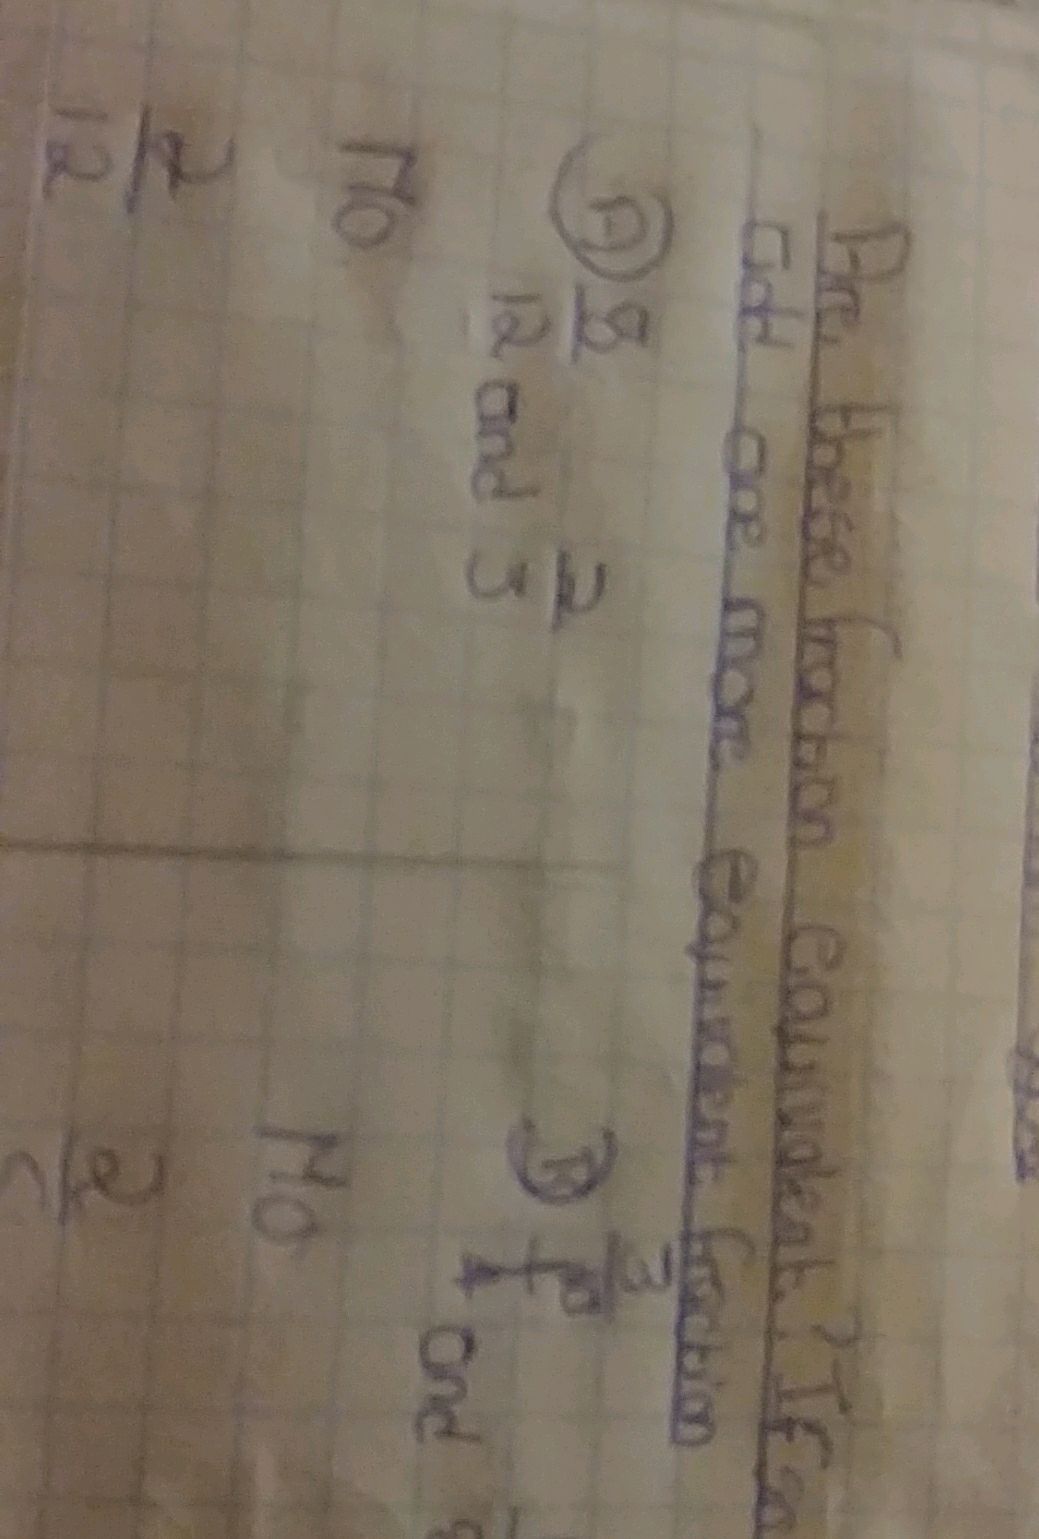 Are these fraction equivalent? If so
add one more equivalent fraction
A 8/12 and 2/3
B 3
and
No
No
2/12
2